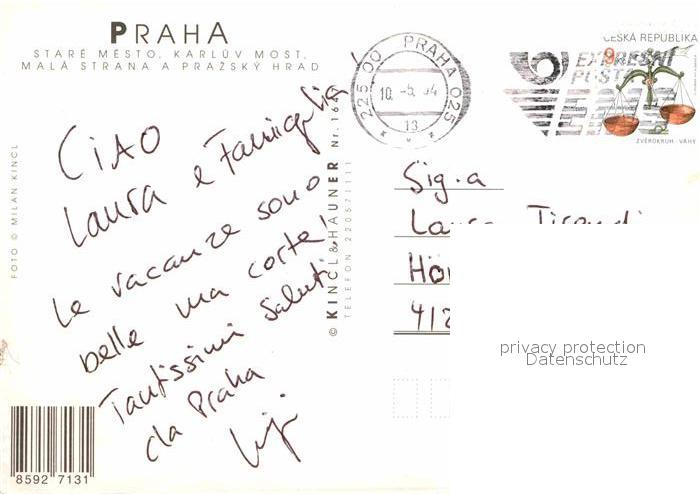 PRAHA
STARÉ MĚSTO, KARLŮV MOST,
MALÁ STRANA A PRAŽSKÝ HRAD
CIAO
Laura e Famiglia!
Le vacanze sono
belle ma corte!
Tantissimi saluti
da Praha
FOTO © MILAN KINCL
© KINCL & HAUNER Nr. 164
TELEFON 220571111
225 00 PRAHA 025
10. -5. 04
13
EXPRESNÍ
POSTA
EMS
ČESKÁ REPUBLIKA
9
ZVĚROKRUH - VÁHY
Sig.a
Laura
412
privacy protection
Datenschutz
8592 7131